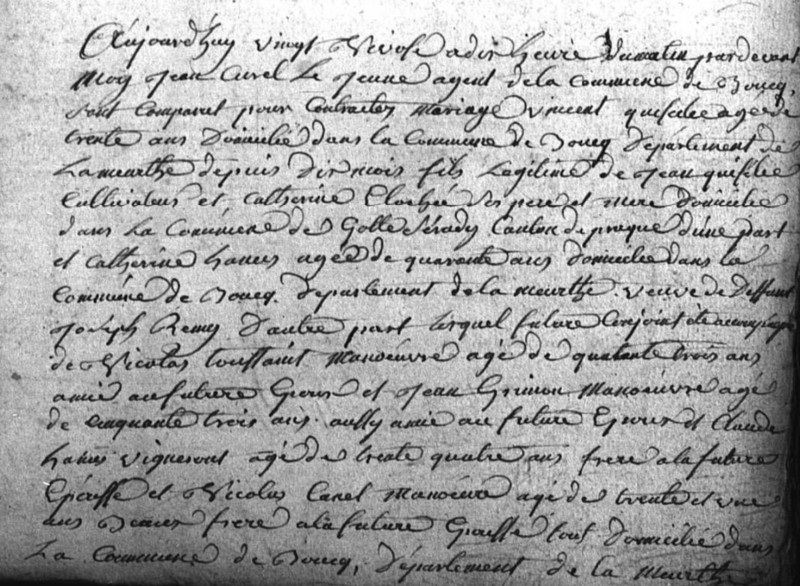 Aujourdhuy vingt Nivose a dix heure Dumatin pardevant
Moy Jean Curel Le Jeune agent dela Commune de Boucq,
sont comparut pour Contracter mariage vincent quisilie agee de
trente ans Domicilié dans la Commune de Boucq Département de
Lameurthe depuis Dix mois fils Legitime de Jean quisilie
Cultivateur et Catherine Ses pere et mere Domicilie
dans La Commune de Canton de d'une part
et Catherine hanus agee de quarante ans Domicilie dans la
Commune de Boucq. Département de la meurthe. veuve de Deffunt
Joseph Remy D'autre part lesquel future Conjoint
de Nicolas toussaint Manoeuvre agé de quatante trois ans
amie au future Epoux et Jean Grimon Manoeuvre agé
de cinquante trois ans. aussy amie au future Epoux et Claude
hanus vigneront agé de trente quatre ans frere a la future
Epousse et Nicolas Canel Manoeuvre agé de trente et une
ans Beau frere a la future Epousse tout Domicilié dans
La Commune de Boucq, Département de la Meurthe